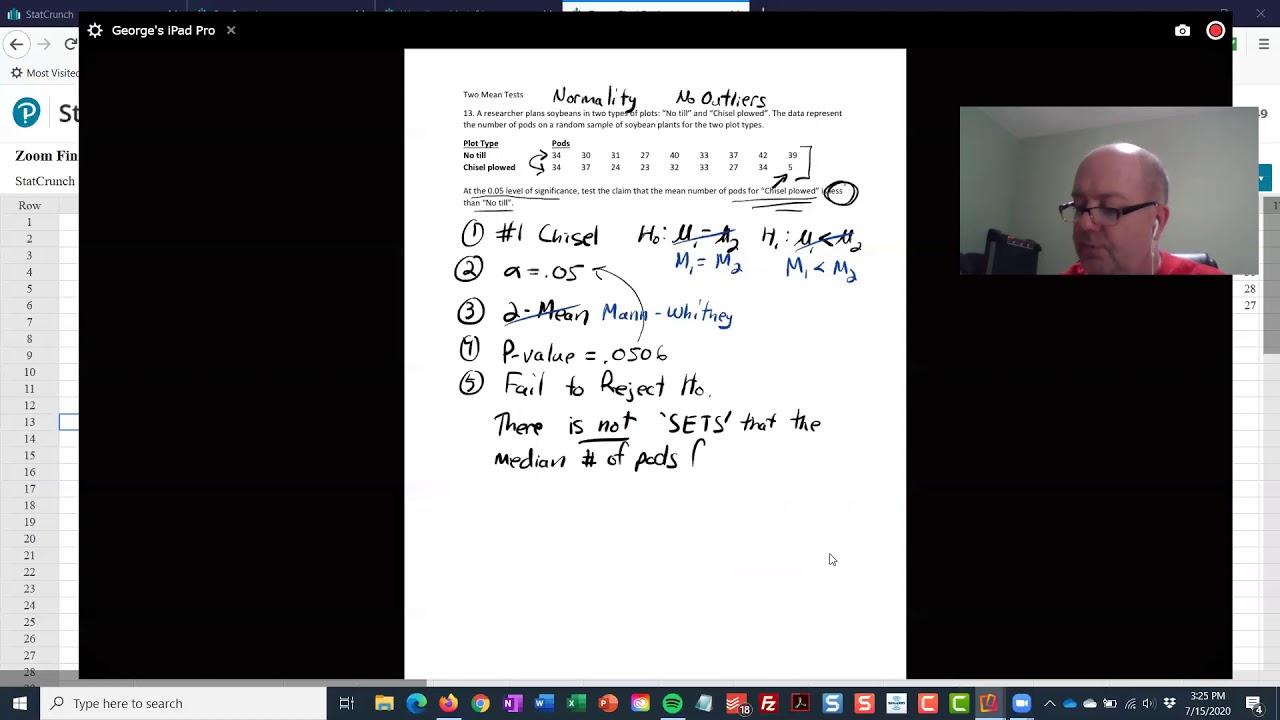 George's iPad Pro
Most Visited
St
Zoom Fin
StatCrunch
Row
1
6
9
10
11
12
13
14
15
16
17
18
19
20
21
22
23
24
25
26
27
28
Two Mean Tests Normality No Outliers
13. A researcher plans soybeans in two types of plots: "No till" and "Chisel plowed". The data represent
the number of pods on a random sample of soybean plants for the two plot types.
Plot Type Pods
No till 34 30 31 27 40 33 37 42 39
Chisel plowed 34 37 24 23 32 33 27 34 5
At the 0.05 level of significance, test the claim that the mean number of pods for "Chisel plowed" is less
than "No till".
① #1 Chisel H₀: μ₁ = μ₂ H₁: μ₁ < μ₂
M₁ = M₂ M₁ < M₂
② α = .05
③ 2-Mean Mann-Whitney
④ P-value = .0506
⑤ Fail to Reject H₀.
There is not 'SETS' that the
median # of pods (
28
27
Type here to search
18
3:25 PM
7/15/2020